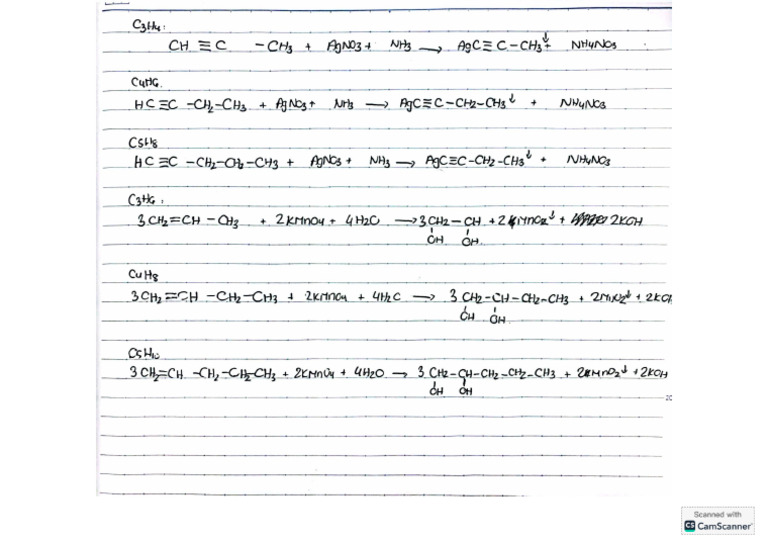 C3H4:
CH ≡ C - CH3 + AgNO3 + NH3 → AgC ≡ C - CH3↓ + NH4NO3
C4H6
HC ≡ C - CH2 - CH3 + AgNO3 + NH3 → AgC ≡ C - CH2 - CH3↓ + NH4NO3
C5H8
HC ≡ C - CH2 - CH2 - CH3 + AgNO3 + NH3 → AgC ≡ C - CH2 - CH3↓ + NH4NO3
C3H6:
3CH2 = CH - CH3 + 2KMnO4 + 4H2O → 3CH2 - CH + 2MnO2↓ + 2KOH
OH OH
C4H8
3CH2 = CH - CH2 - CH3 + 2KMnO4 + 4H2O → 3 CH2 - CH - CH2 - CH3 + 2MnO2↓ + 2KOH
OH OH
C5H10
3CH2 = CH - CH2 - CH2 - CH3 + 2KMnO4 + 4H2O → 3 CH2 - CH - CH2 - CH2 - CH3 + 2MnO2↓ + 2KOH
OH OH
Scanned with
CS CamScanner